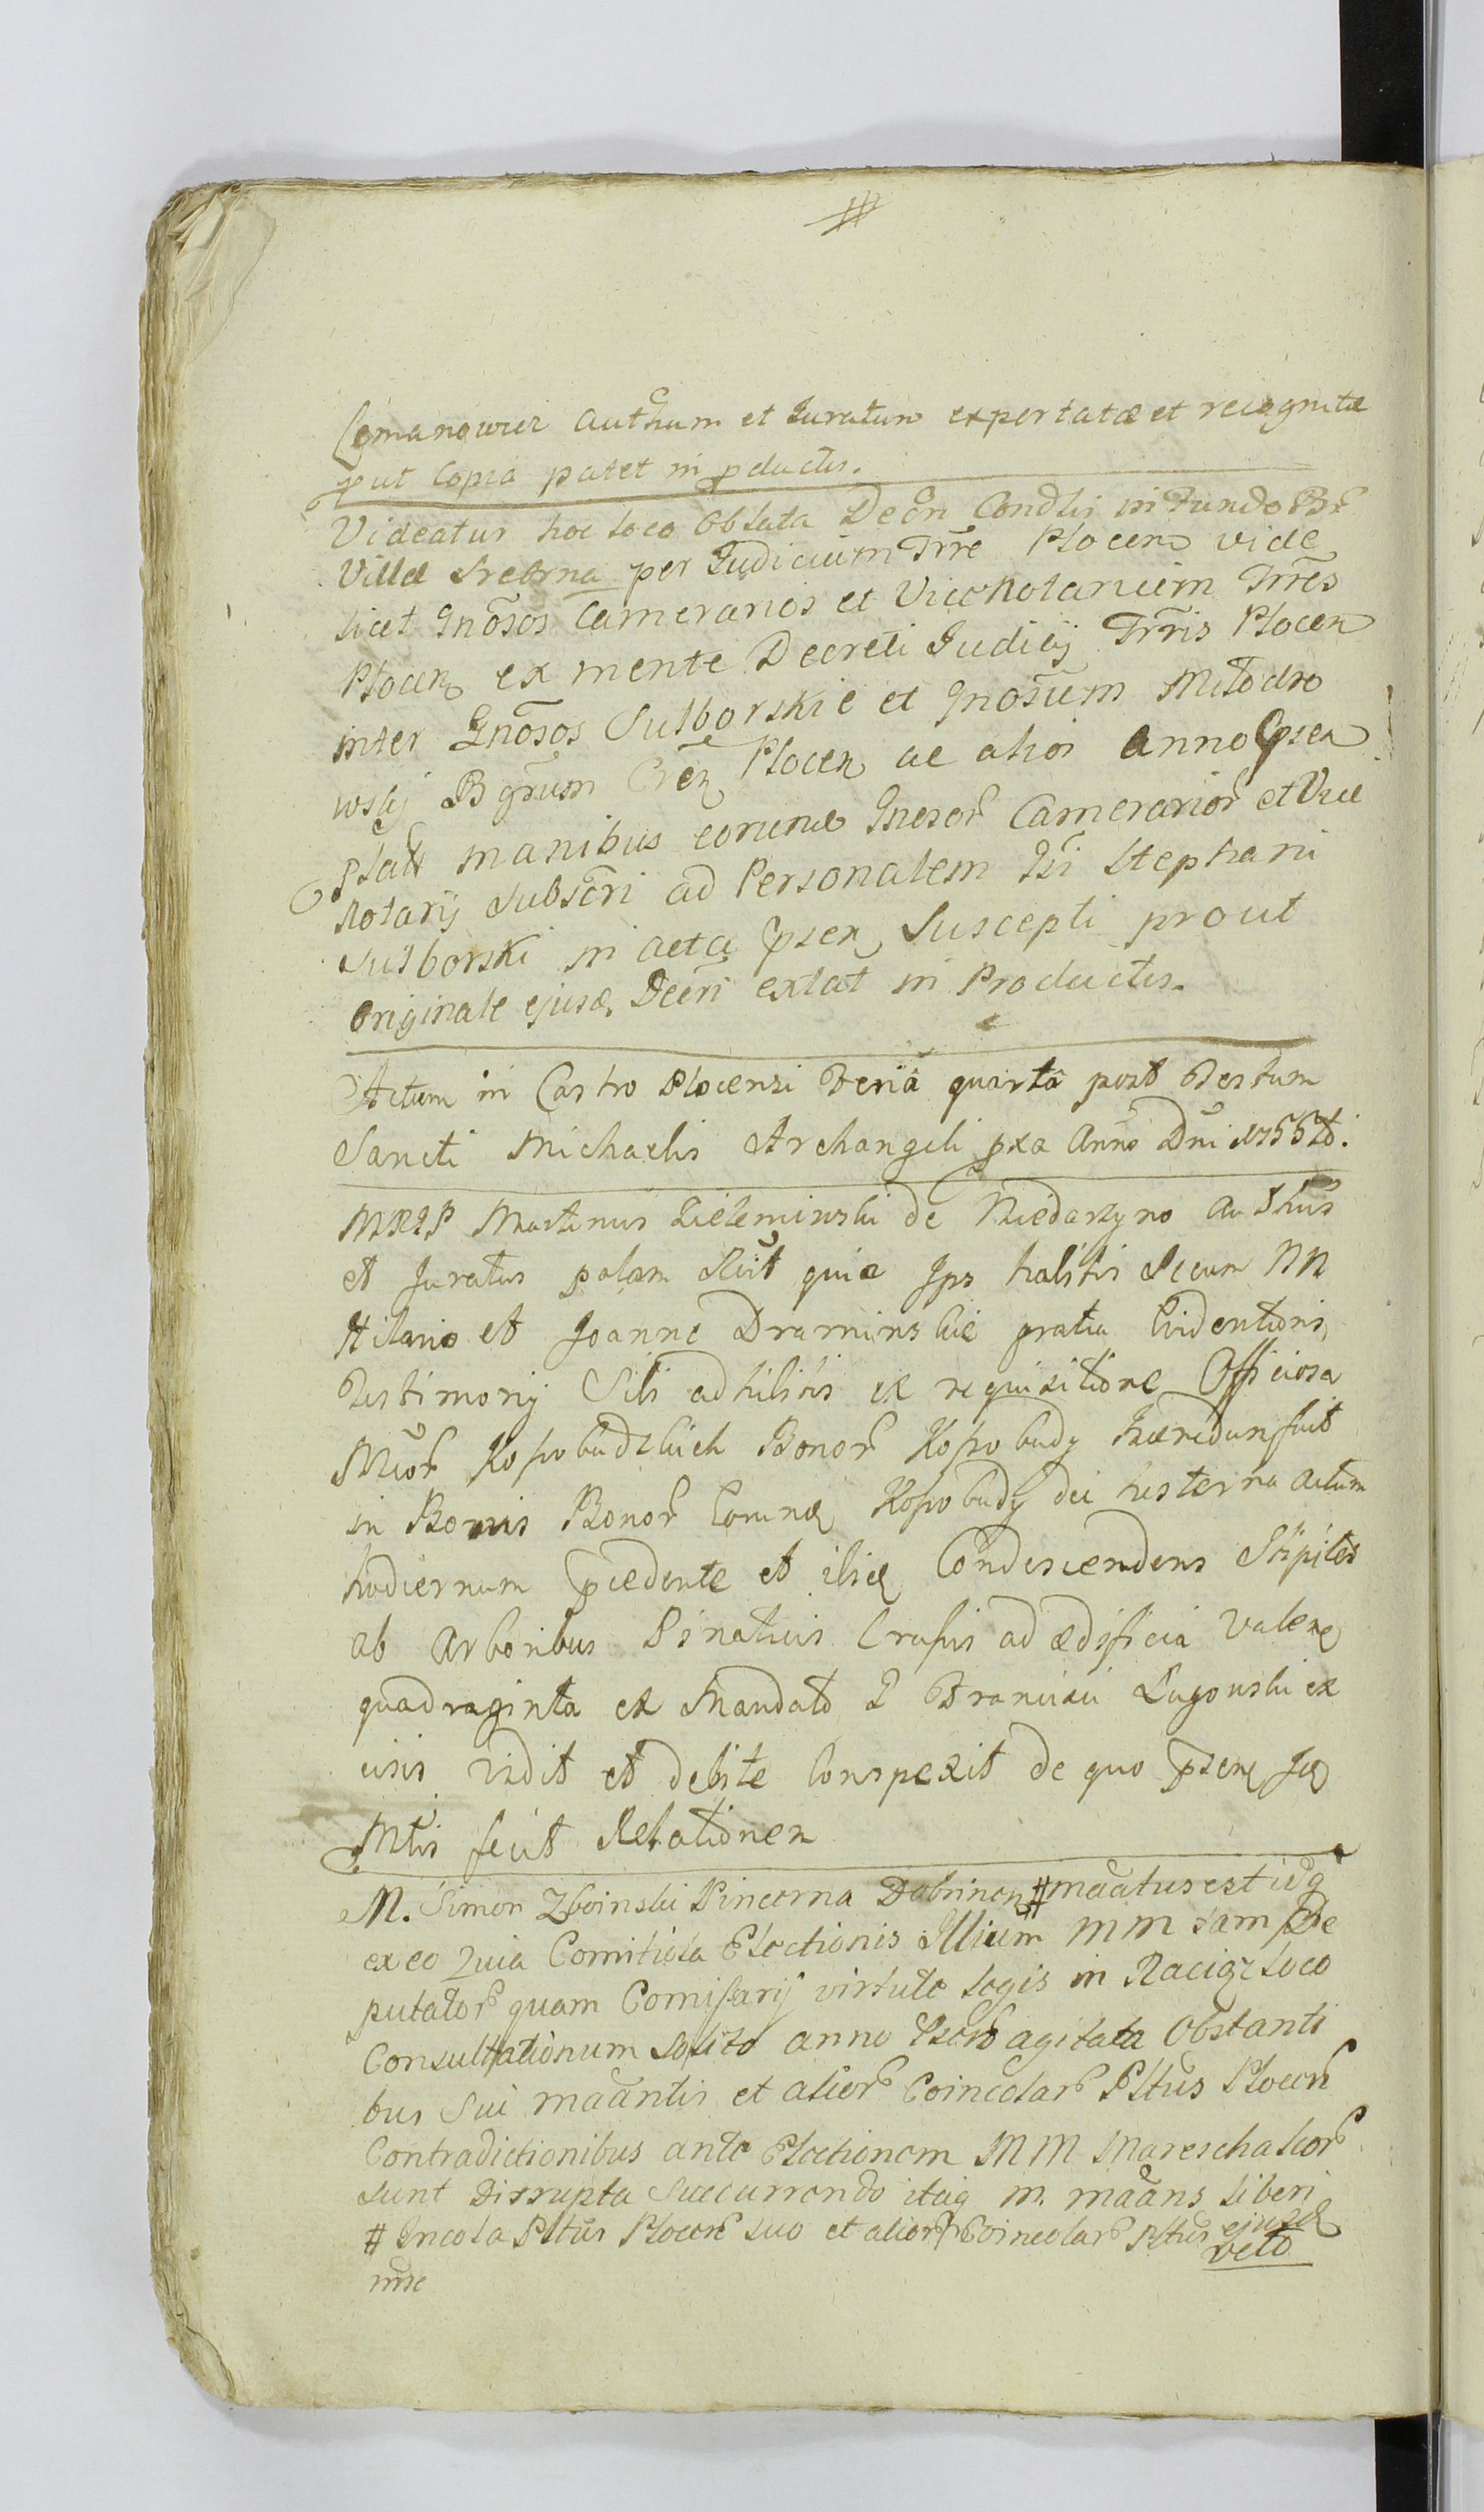 #
authum et Juratum exportatæ et recognitæ
put Copia patet in pductis.
Videatur hoc loco Oblata Decri Condlis in Fundo Br
Villæ Srebrna per Judicium Trre Plocen vide
licet Gnosos Camerarios et ViceNotarium Trres
Plocen ex mente Decreti Judicij Trris Plocen
inter Gnosos Sulborskie et Gnosum Mlodzio
wskj Bgrum Cren Plocen ac alios anno Psen
manibus eorund Gnosor Camerarior et Vice
Notarij Subscri ad Personalem Gsi Stephani
Sulborski in acta Psen Suscepti prout
Originale ejusd Decri extat in Productis.
Actum in Castro Plocensi Feria quarta post Festum
Sancti Michaelis Archangeli pxa Anno Dni 1755to.
MRIP Martinus Zieleminski de Niedarzyno Authus
et Juratus palam Rcit quia Ips habitis Secum NN
Hilario et Joanne Draminskie gratia Evidentioris
Testimonij Sibi adhibitis ex requisitione Officiosa
Mcor Kosobudzkich Bonor Kosobudy Hæredum fuit
in Bonis Bonor Eorund Kosobudy die hesterna actum
hodiernum pcedente et ibid Condescendens Stipites
ab Arboribus Pinaticis Crassis ad ædificia valen
quadraginta ex Mandato Francisci Lugowski ex
cisis vidit et debite Conspexit de quo Psen
Mtis fecit Relationem
M. Simon Zboinski Pincerna Dobrinen # maatus est idq
ex eo Quia Comitiola Electionis Illium MM tam De
putator quam Comissarij virtute legis in Raciąż loco
Consultationum solito anno Psen agitata Obstanti
bus Sui maantis et alior Coincolar Pltus Plocen
Contradictionibus ante Electionem MM Mareschalcor
sunt Disrupta Succurrendo itaq m. maans liberi
# Incola Pltus Plocen suo et alior Coincolar Pltus ejusd
nne veto